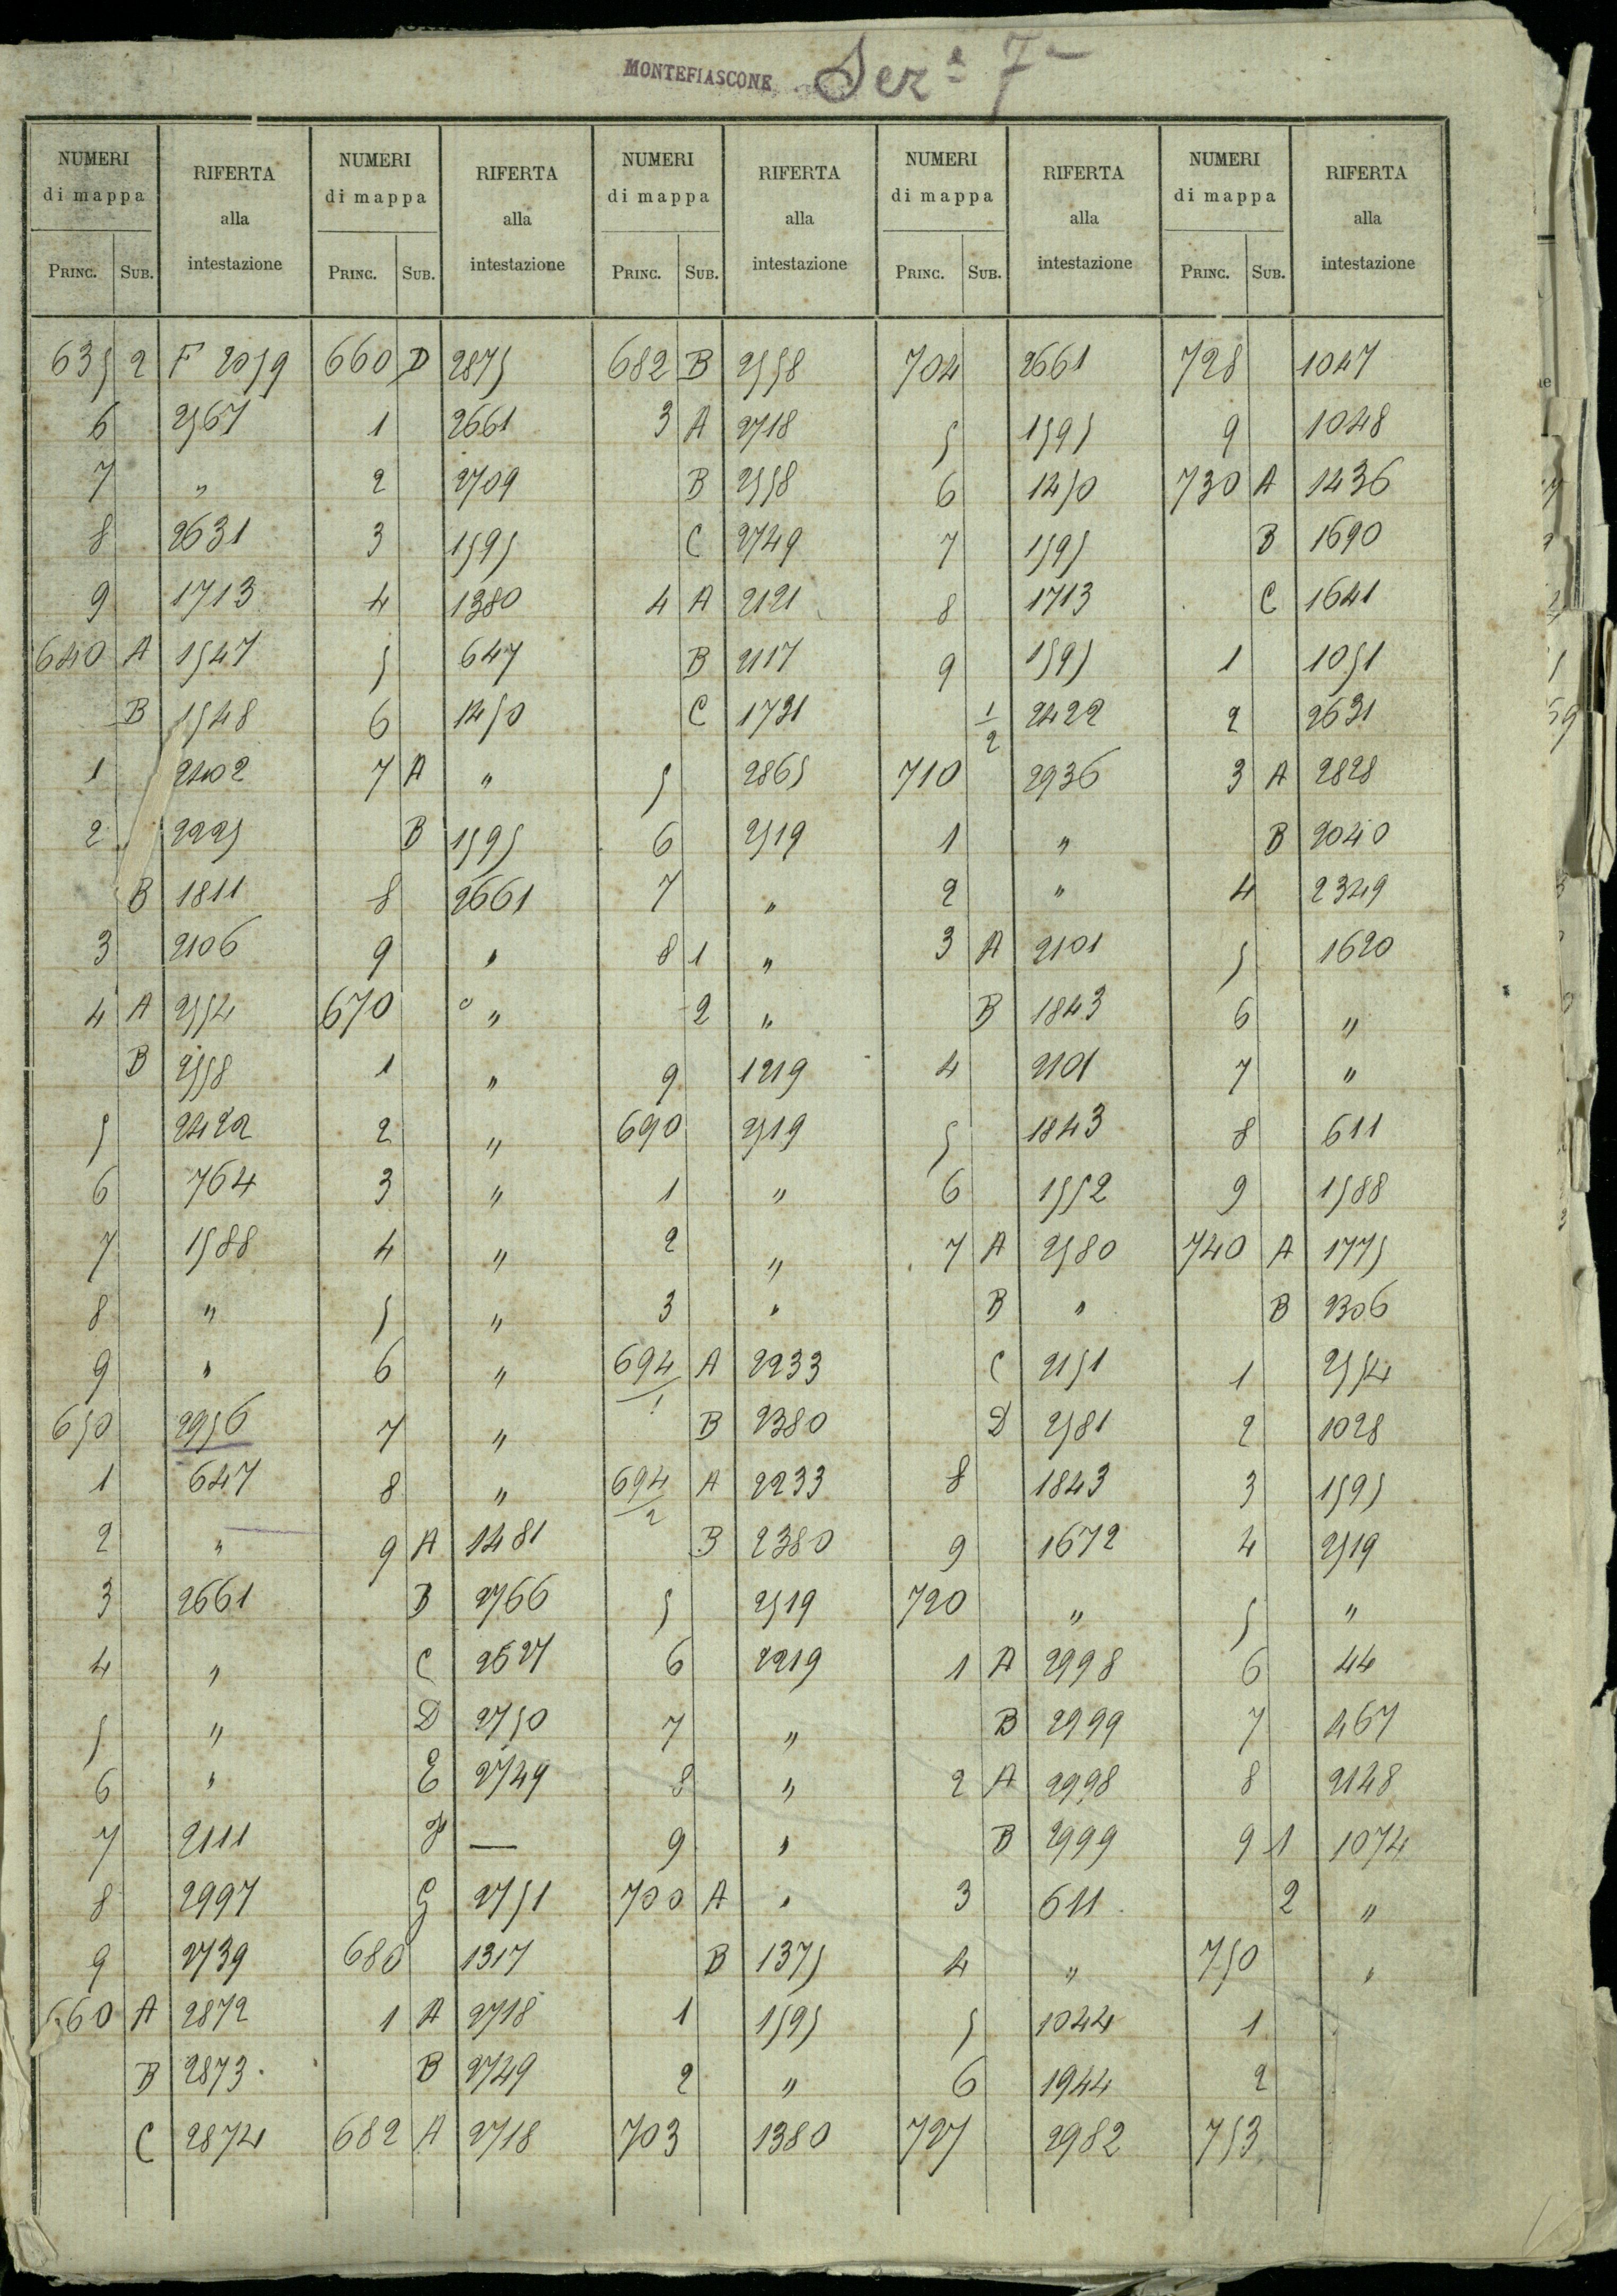 MONTEFIASCONE Sez.e 7a
NUMERI di mappa RIFERTA alla intestazione NUMERI di mappa RIFERTA alla intestazione NUMERI di mappa RIFERTA alla intestazione NUMERI di mappa RIFERTA alla intestazione NUMERI di mappa RIFERTA alla intestazione
PRINC. SUB. PRINC. SUB. PRINC. SUB. PRINC. SUB. PRINC. SUB.
635 2 F 2059 660 D 2875 682 B 2558 704 2661 728 1047
6 2567 1 2661 3 A 2718 5 1595 9 1048
7 " 2 2709 B 2558 6 1450 730 A 1436
8 2631 3 1595 C 2749 7 1595 B 1690
9 1713 4 1380 4 A 2121 8 1713 C 1641
640 A 1547 5 647 B 2117 9 1595 1 1051
B 1548 6 1450 C 1731 1/2 2422 2 2631
1 2402 7 A " 5 2865 710 2936 3 A 2828
2 2225 B 1595 6 2519 1 " B 2040
B 1811 8 2661 7 " 2 " 4 2349
3 2106 9 " 8 1 " 3 A 2101 5 1620
4 A 2554 670 " 2 " B 1843 6 "
B 2558 1 " 9 1219 4 2101 7 "
5 2422 2 " 690 2519 5 1843 8 611
6 764 3 " 1 " 6 1552 9 1588
7 1588 4 " 2 " 7 A 2580 740 A 1775
8 " 5 " 3 " B " B 2306
9 " 6 " 694/1 A 2233 C 2151 1 2554
650 2956 7 " B 2380 D 2581 2 1028
1 647 8 " 694/2 A 2233 8 1843 3 1595
2 " 9 A 1481 B 2380 9 1672 4 2519
3 2661 B 2766 5 2519 720 " 5 "
4 " C 2627 6 2219 1 A 2998 6 44
5 " D 2750 7 " B 2999 7 467
6 " E 2749 8 " 2 A 2998 8 2148
7 2111 F — 9 " B 2999 9 1 1074
8 2997 G 2751 700 A " 3 611 2 "
9 2739 680 1317 B 1375 4 " 750 "
660 A 2872 1 A 2718 1 1595 5 1044 1
B 2873 B 2749 2 " 6 1944 2
C 2874 682 A 2718 703 1380 727 2982 753